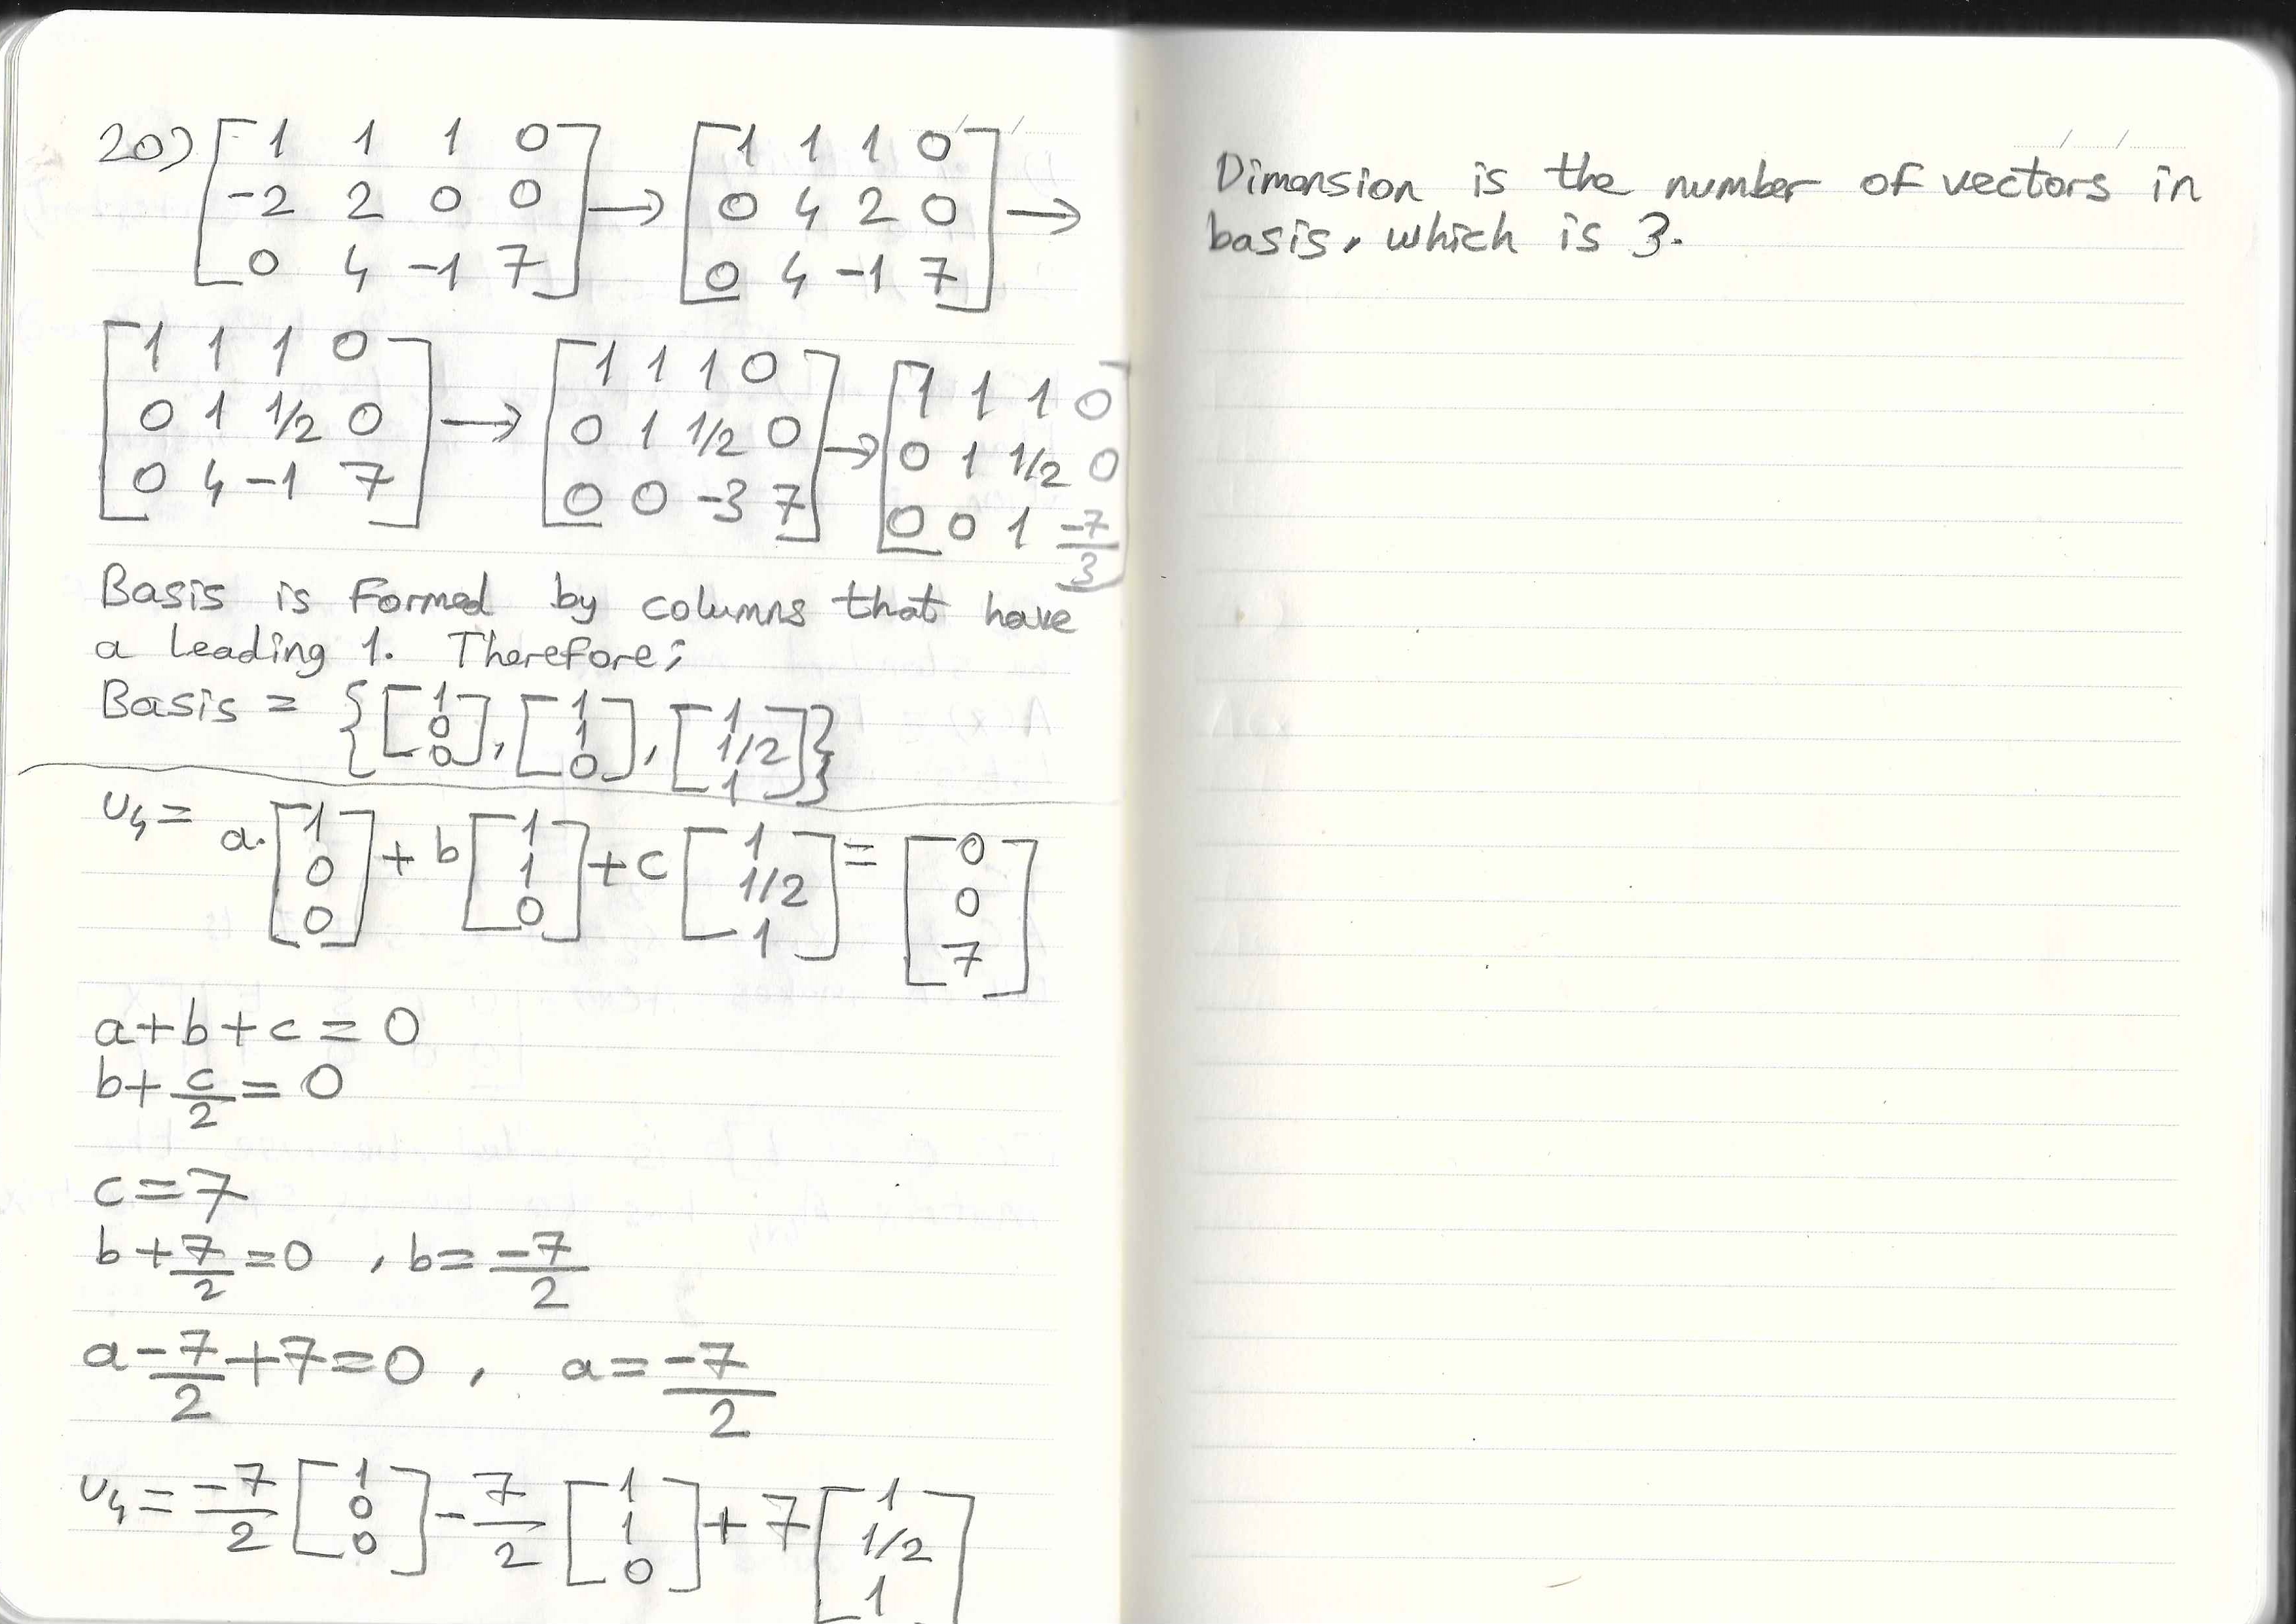 20) [1 1 1 0; -2 2 0 0; 0 4 -1 7] → [1 1 1 0; 0 4 2 0; 0 4 -1 7] →
[1 1 1 0; 0 1 1/2 0; 0 4 -1 7] → [1 1 1 0; 0 1 1/2 0; 0 0 -3 7] → [1 1 1 0; 0 1 1/2 0; 0 0 1 -7/3]
Basis is formed by columns that have
a leading 1. Therefore;
Basis = {[1 0 0], [1 1 0], [1 1/2 1]}
v4 = a.[1 0 0] + b[1 1 0] + c[1 1/2 1] = [0 0 7]
a+b+c = 0
b+c/2 = 0
c=7
b+7/2=0 , b=-7/2
a-7/2+7=0 , a=-7/2
v4 = -7/2 [1 0 0] - 7/2 [1 1 0] + 7[1 1/2 1]
Dimension is the number of vectors in
basis, which is 3.